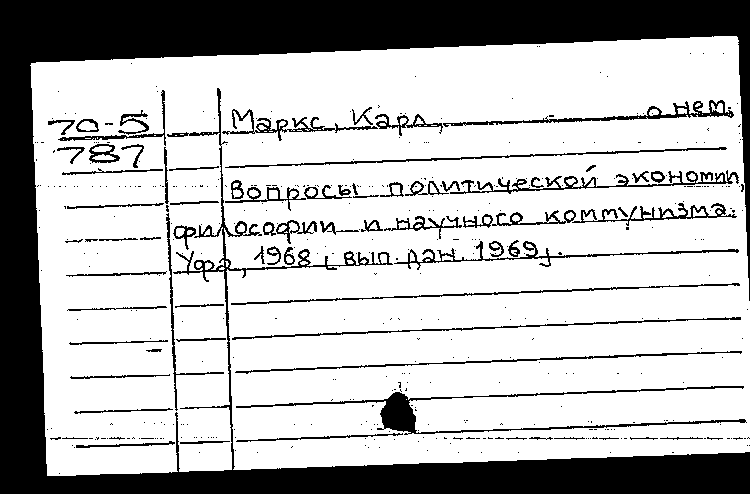 70-5
787
Маркс, Карл, — о нем.
Вопросы политической экономии,
философии и научного коммунизма.
Уфа, 1968 [вып. дан. 1969].